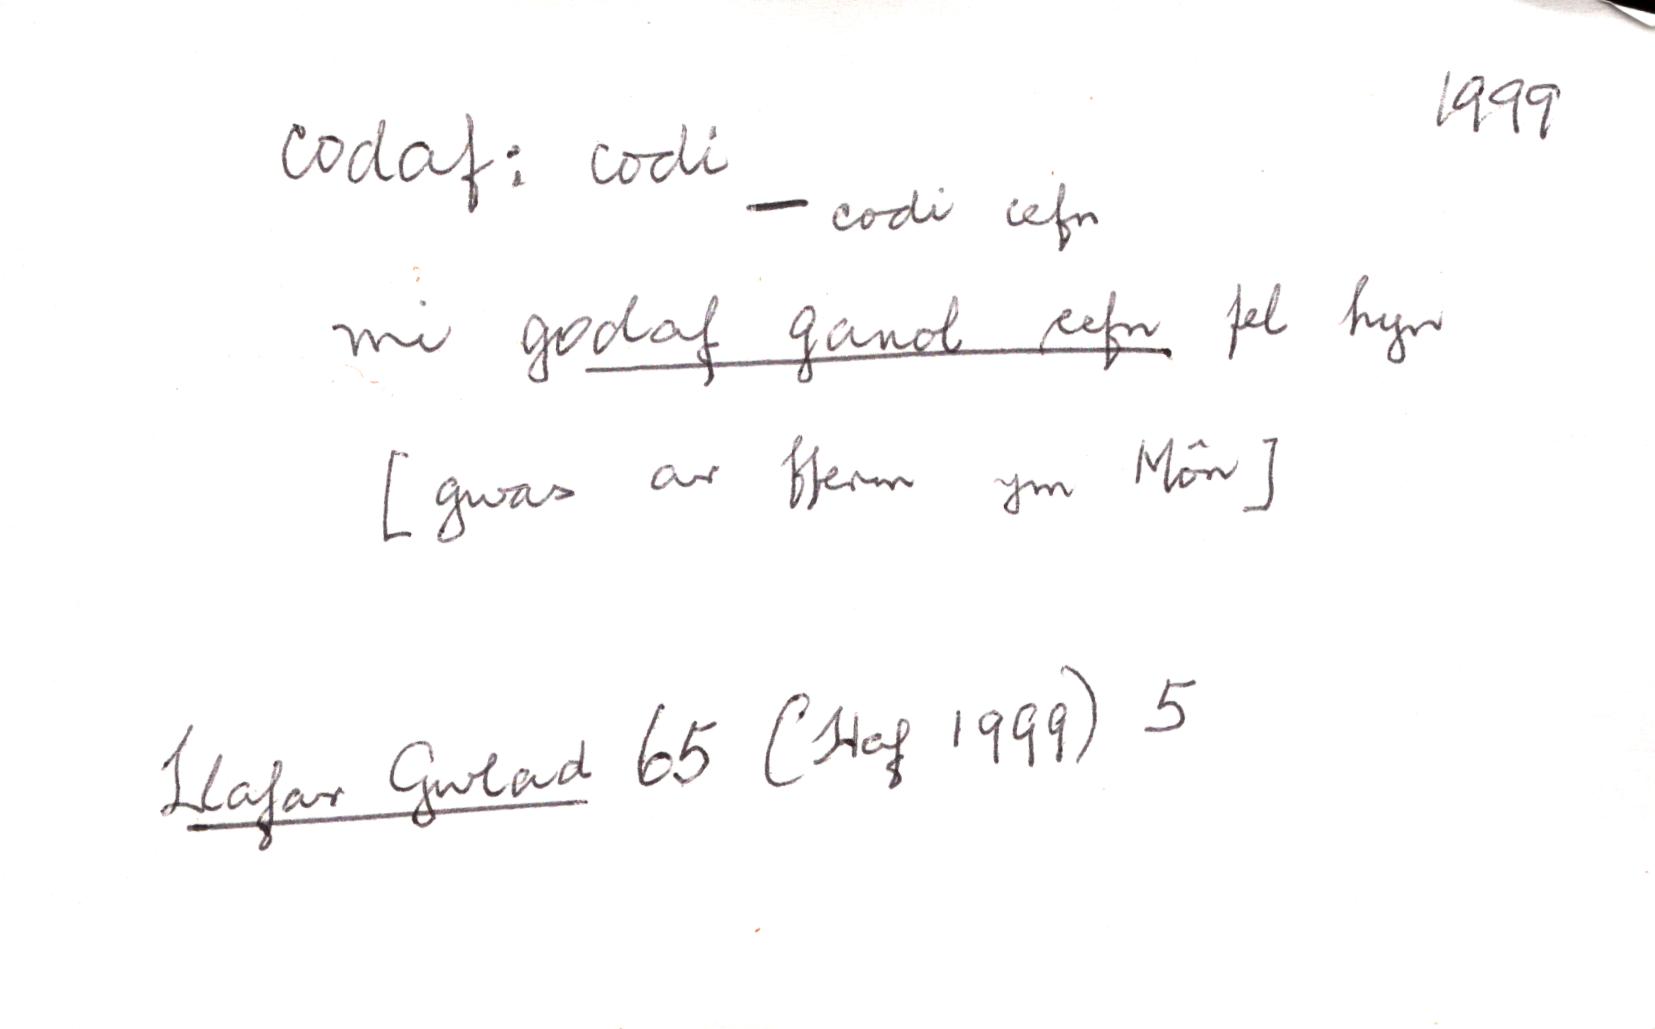 1999
codaf: codi
– codi cefn
mi godaf ganol cefn fel hyn
[gwas ar fferm ym Môn]
Llafar Gwlad 65 (Haf 1999) 5